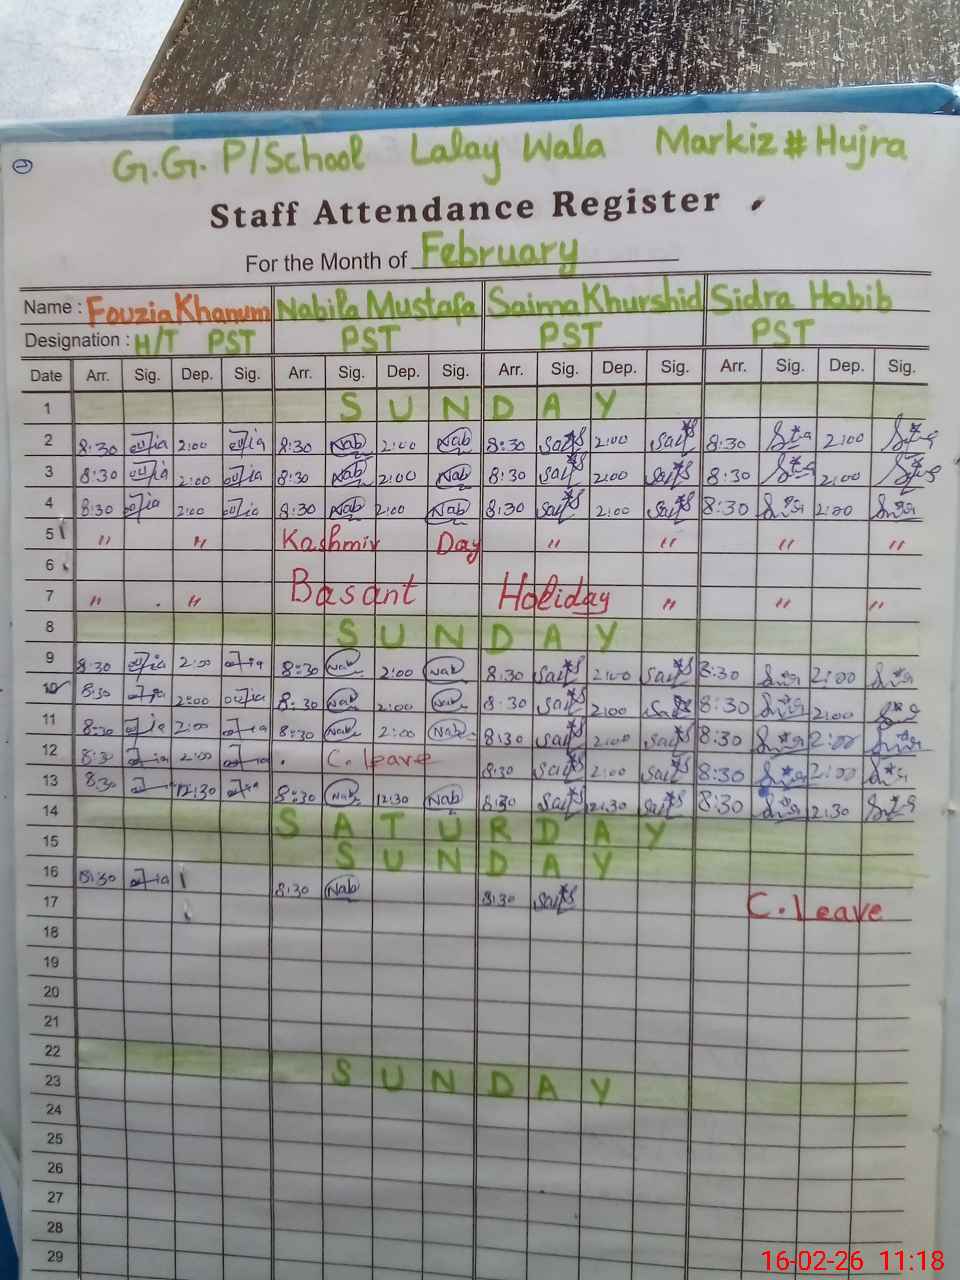 G.G. P/School Lalay Wala Markiz # Hujra
Staff Attendance Register
For the Month of February
Name : Fouzia Khanum Nabila Mustafa Saima Khurshid Sidra Habib
Designation : H/T PST PST PST PST
Date Arr. Sig. Dep. Sig. Arr. Sig. Dep. Sig. Arr. Sig. Dep. Sig. Arr. Sig. Dep. Sig.
1 SUNDAY
2 8:30 2:00 8:30 Nab 2:00 Nab 8:30 2:00 8:30 2:00
3 8:30 2:00 8:30 Nab 2:00 Nab 8:30 2:00 8:30 2:00
4 8:30 2:00 8:30 Nab 2:00 Nab 8:30 2:00 8:30 2:00
5 " " Kashmir Day " " " "
6
7 " " Basant Holiday " " "
8 SUNDAY
9 8:30 2:00 8:30 Nab 2:00 Nab 8:30 2:00 8:30 2:00
10 8:30 2:00 8:30 Nab 2:00 Nab 8:30 2:00 8:30 2:00
11 8:30 2:00 8:30 Nab 2:00 Nab 8:30 2:00 8:30 2:00
12 8:30 2:00 C. leave 8:30 2:00 8:30 2:00
13 8:30 12:30 8:30 Nab 12:30 Nab 8:30 12:30 8:30 12:30
14 SATURDAY
15 SUNDAY
16 8:30 8:30 Nab 8:30 C. Leave
17
18
19
20
21
22 SUNDAY
23
24
25
26
27
28
29
16-02-26 11:18